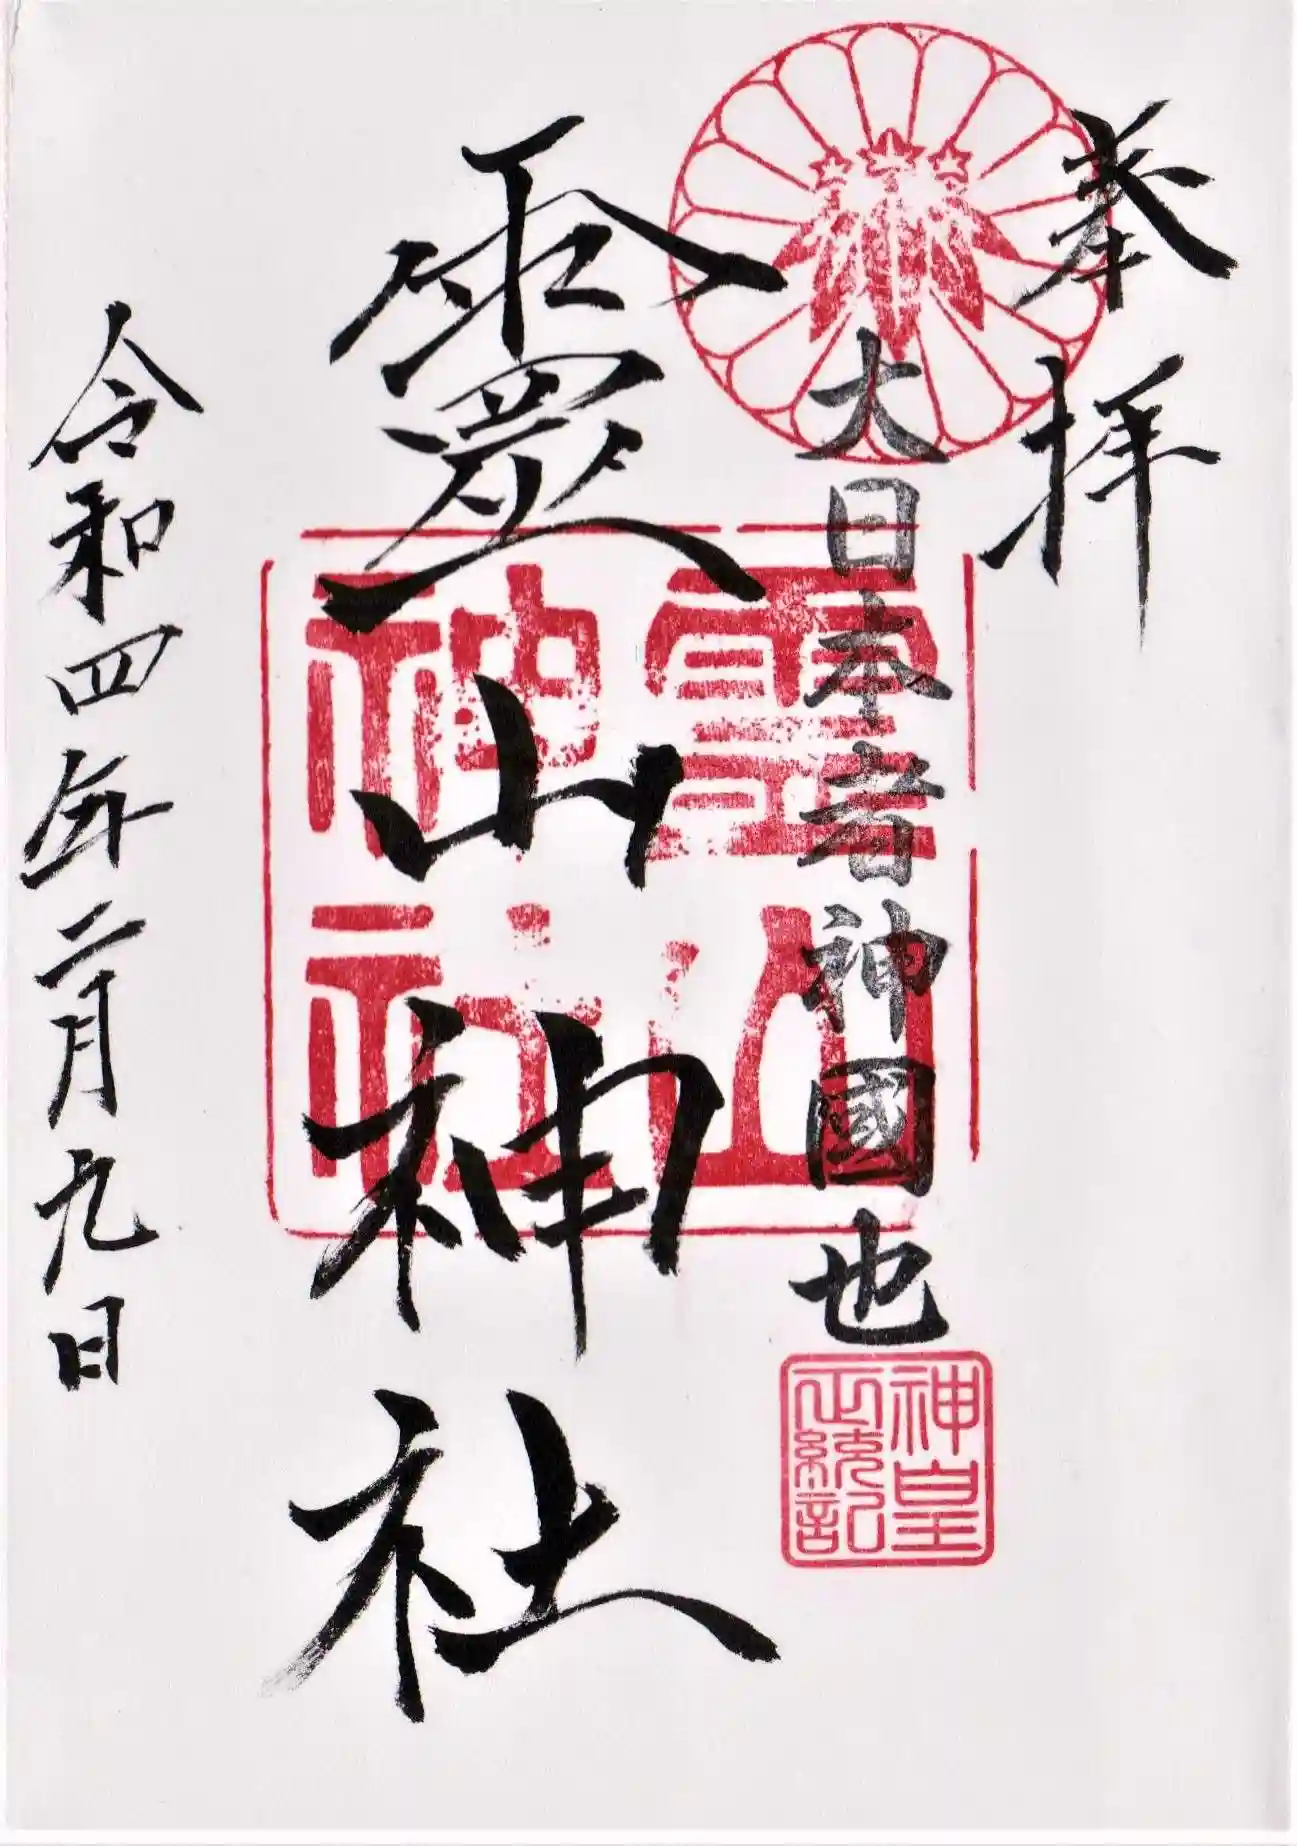 奉拝
大日本者神國也
神皇
正統記
靈山神社
靈山
神社
令和四年二月九日